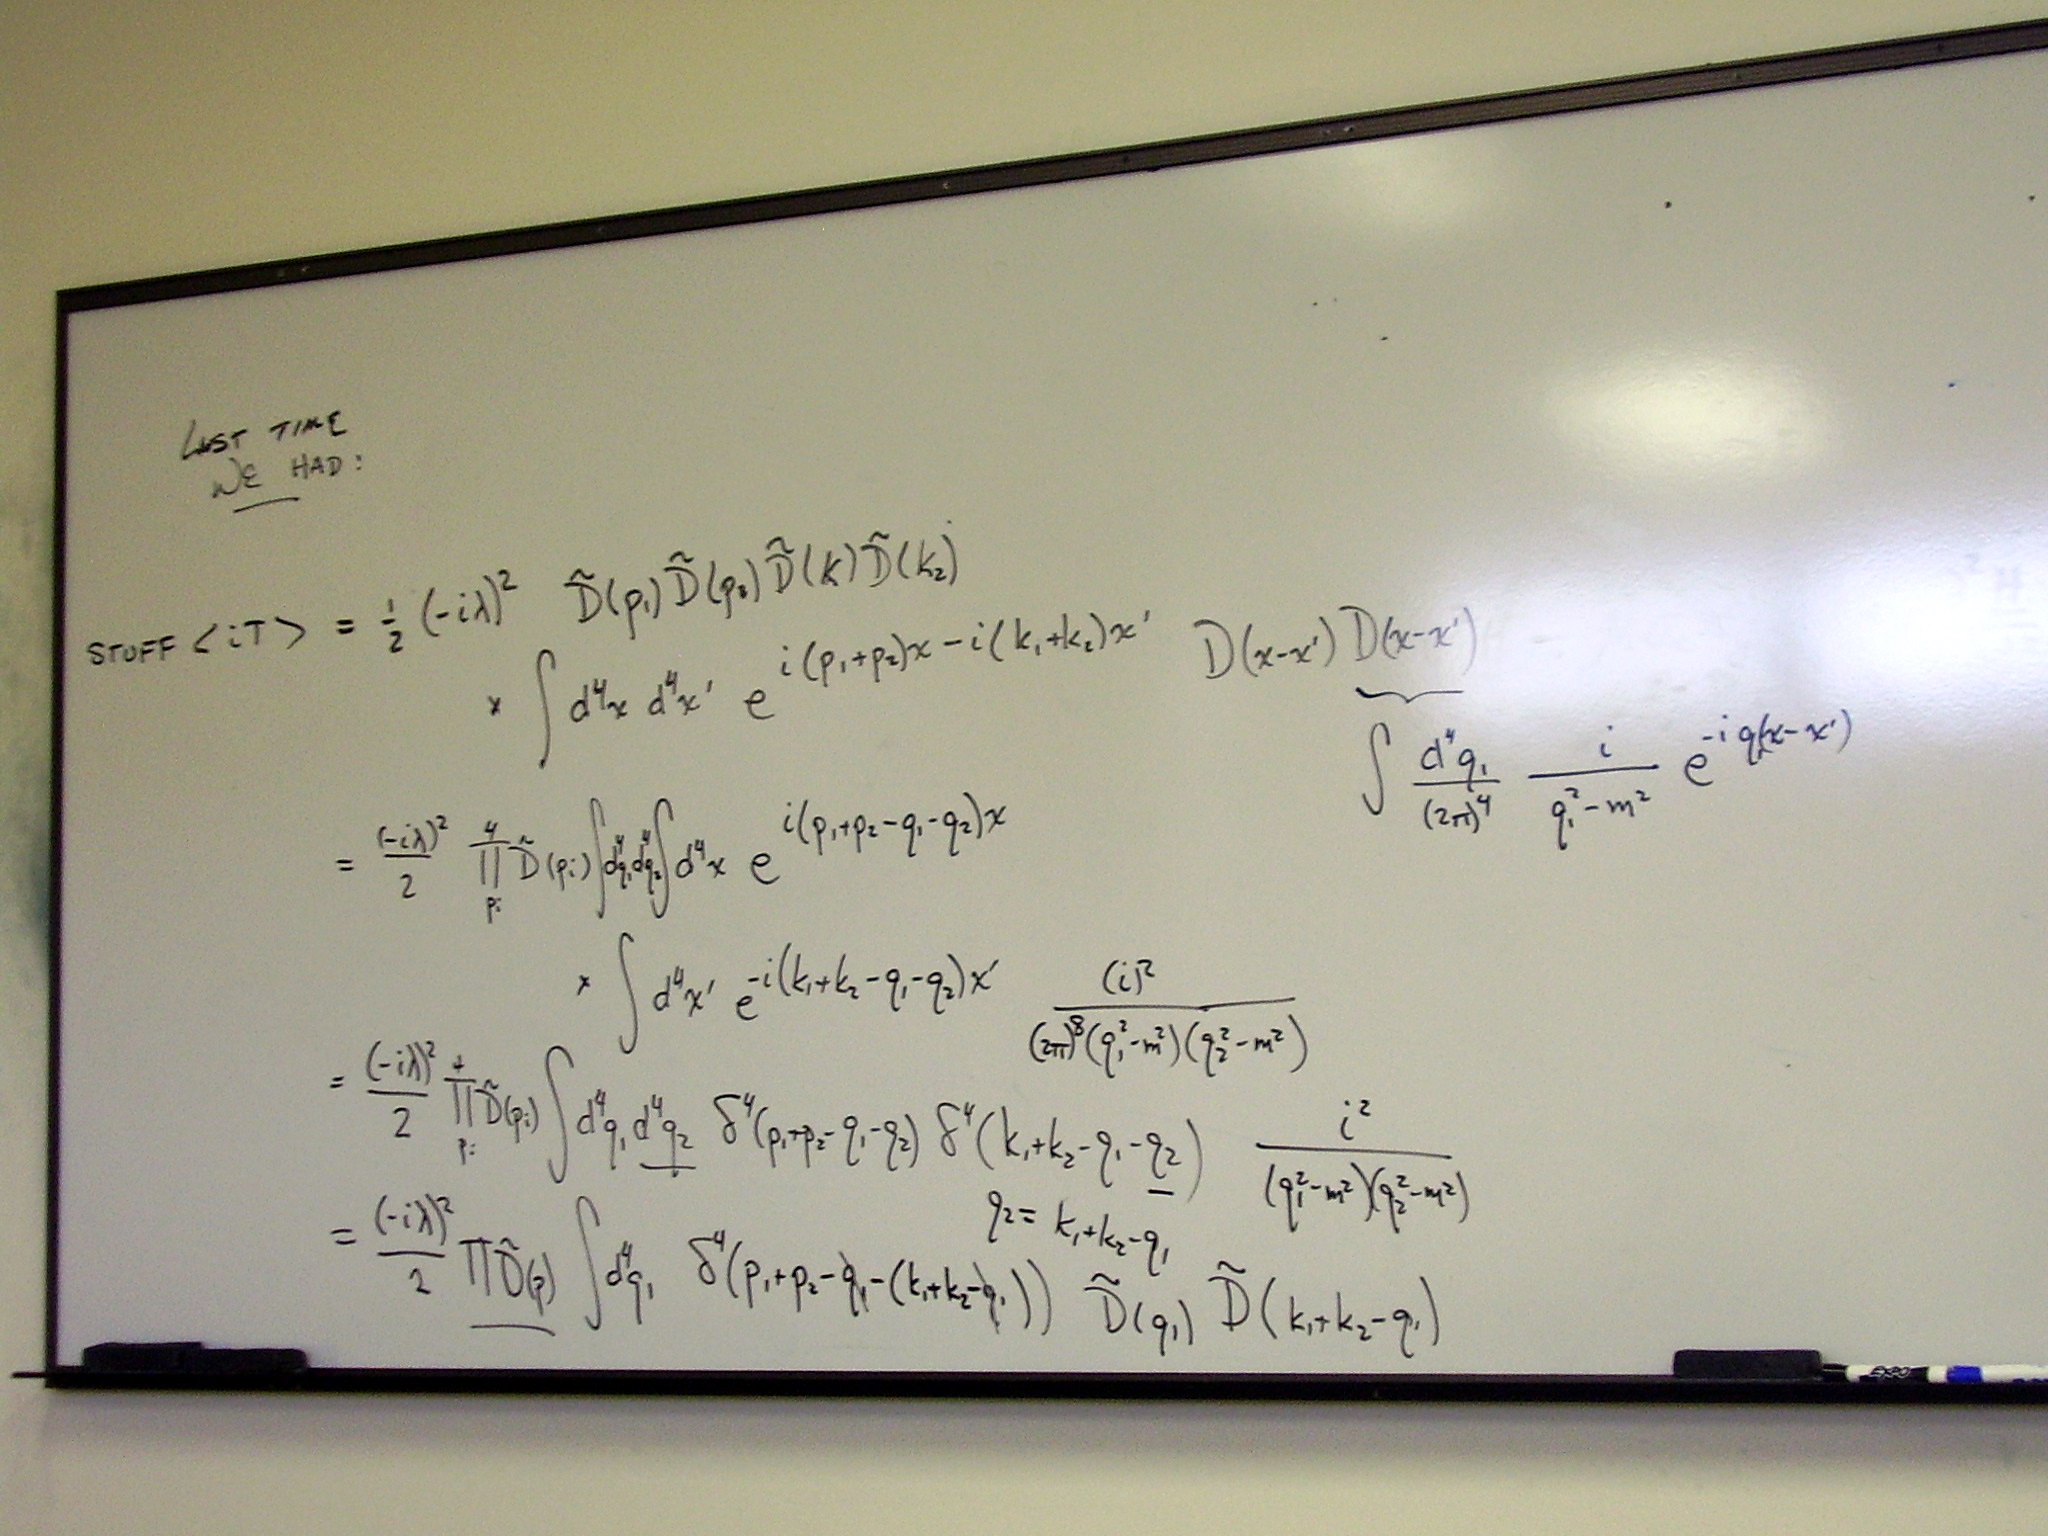 LAST TIME
WE HAD:
STUFF <iT> = 1/2 (-iλ)² D̃(p₁) D̃(p₂) D̃(k) D̃(k₂)
× ∫ d⁴x d⁴x' e^{i(p₁+p₂)x - i(k₁+k₂)x'} D(x-x') D(x-x')
∫ d⁴q₁/(2π)⁴ i/(q₁²-m²) e^{-iq₁(x-x')}
= (-iλ)²/2 ∏_{pᵢ}^{4} D̃(pᵢ) ∫ d⁴q₁ d⁴q₂ ∫ d⁴x e^{i(p₁+p₂-q₁-q₂)x}
× ∫ d⁴x' e^{-i(k₁+k₂-q₁-q₂)x'} (i)²/((2π)⁸(q₁²-m²)(q₂²-m²))
= (-iλ)²/2 ∏_{pᵢ}^{4} D̃(pᵢ) ∫ d⁴q₁ d⁴q₂ δ⁴(p₁+p₂-q₁-q₂) δ⁴(k₁+k₂-q₁-q₂) i²/((q₁²-m²)(q₂²-m²))
q₂ = k₁+k₂-q₁
= (-iλ)²/2 ∏D̃(p) ∫ d⁴q₁ δ⁴(p₁+p₂-q₁-(k₁+k₂-q₁)) D̃(q₁) D̃(k₁+k₂-q₁)
EXPO